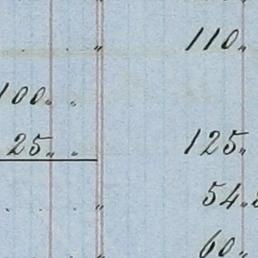 " 110 "
100 " "
25 " " 125 "
" 54 "
60 "